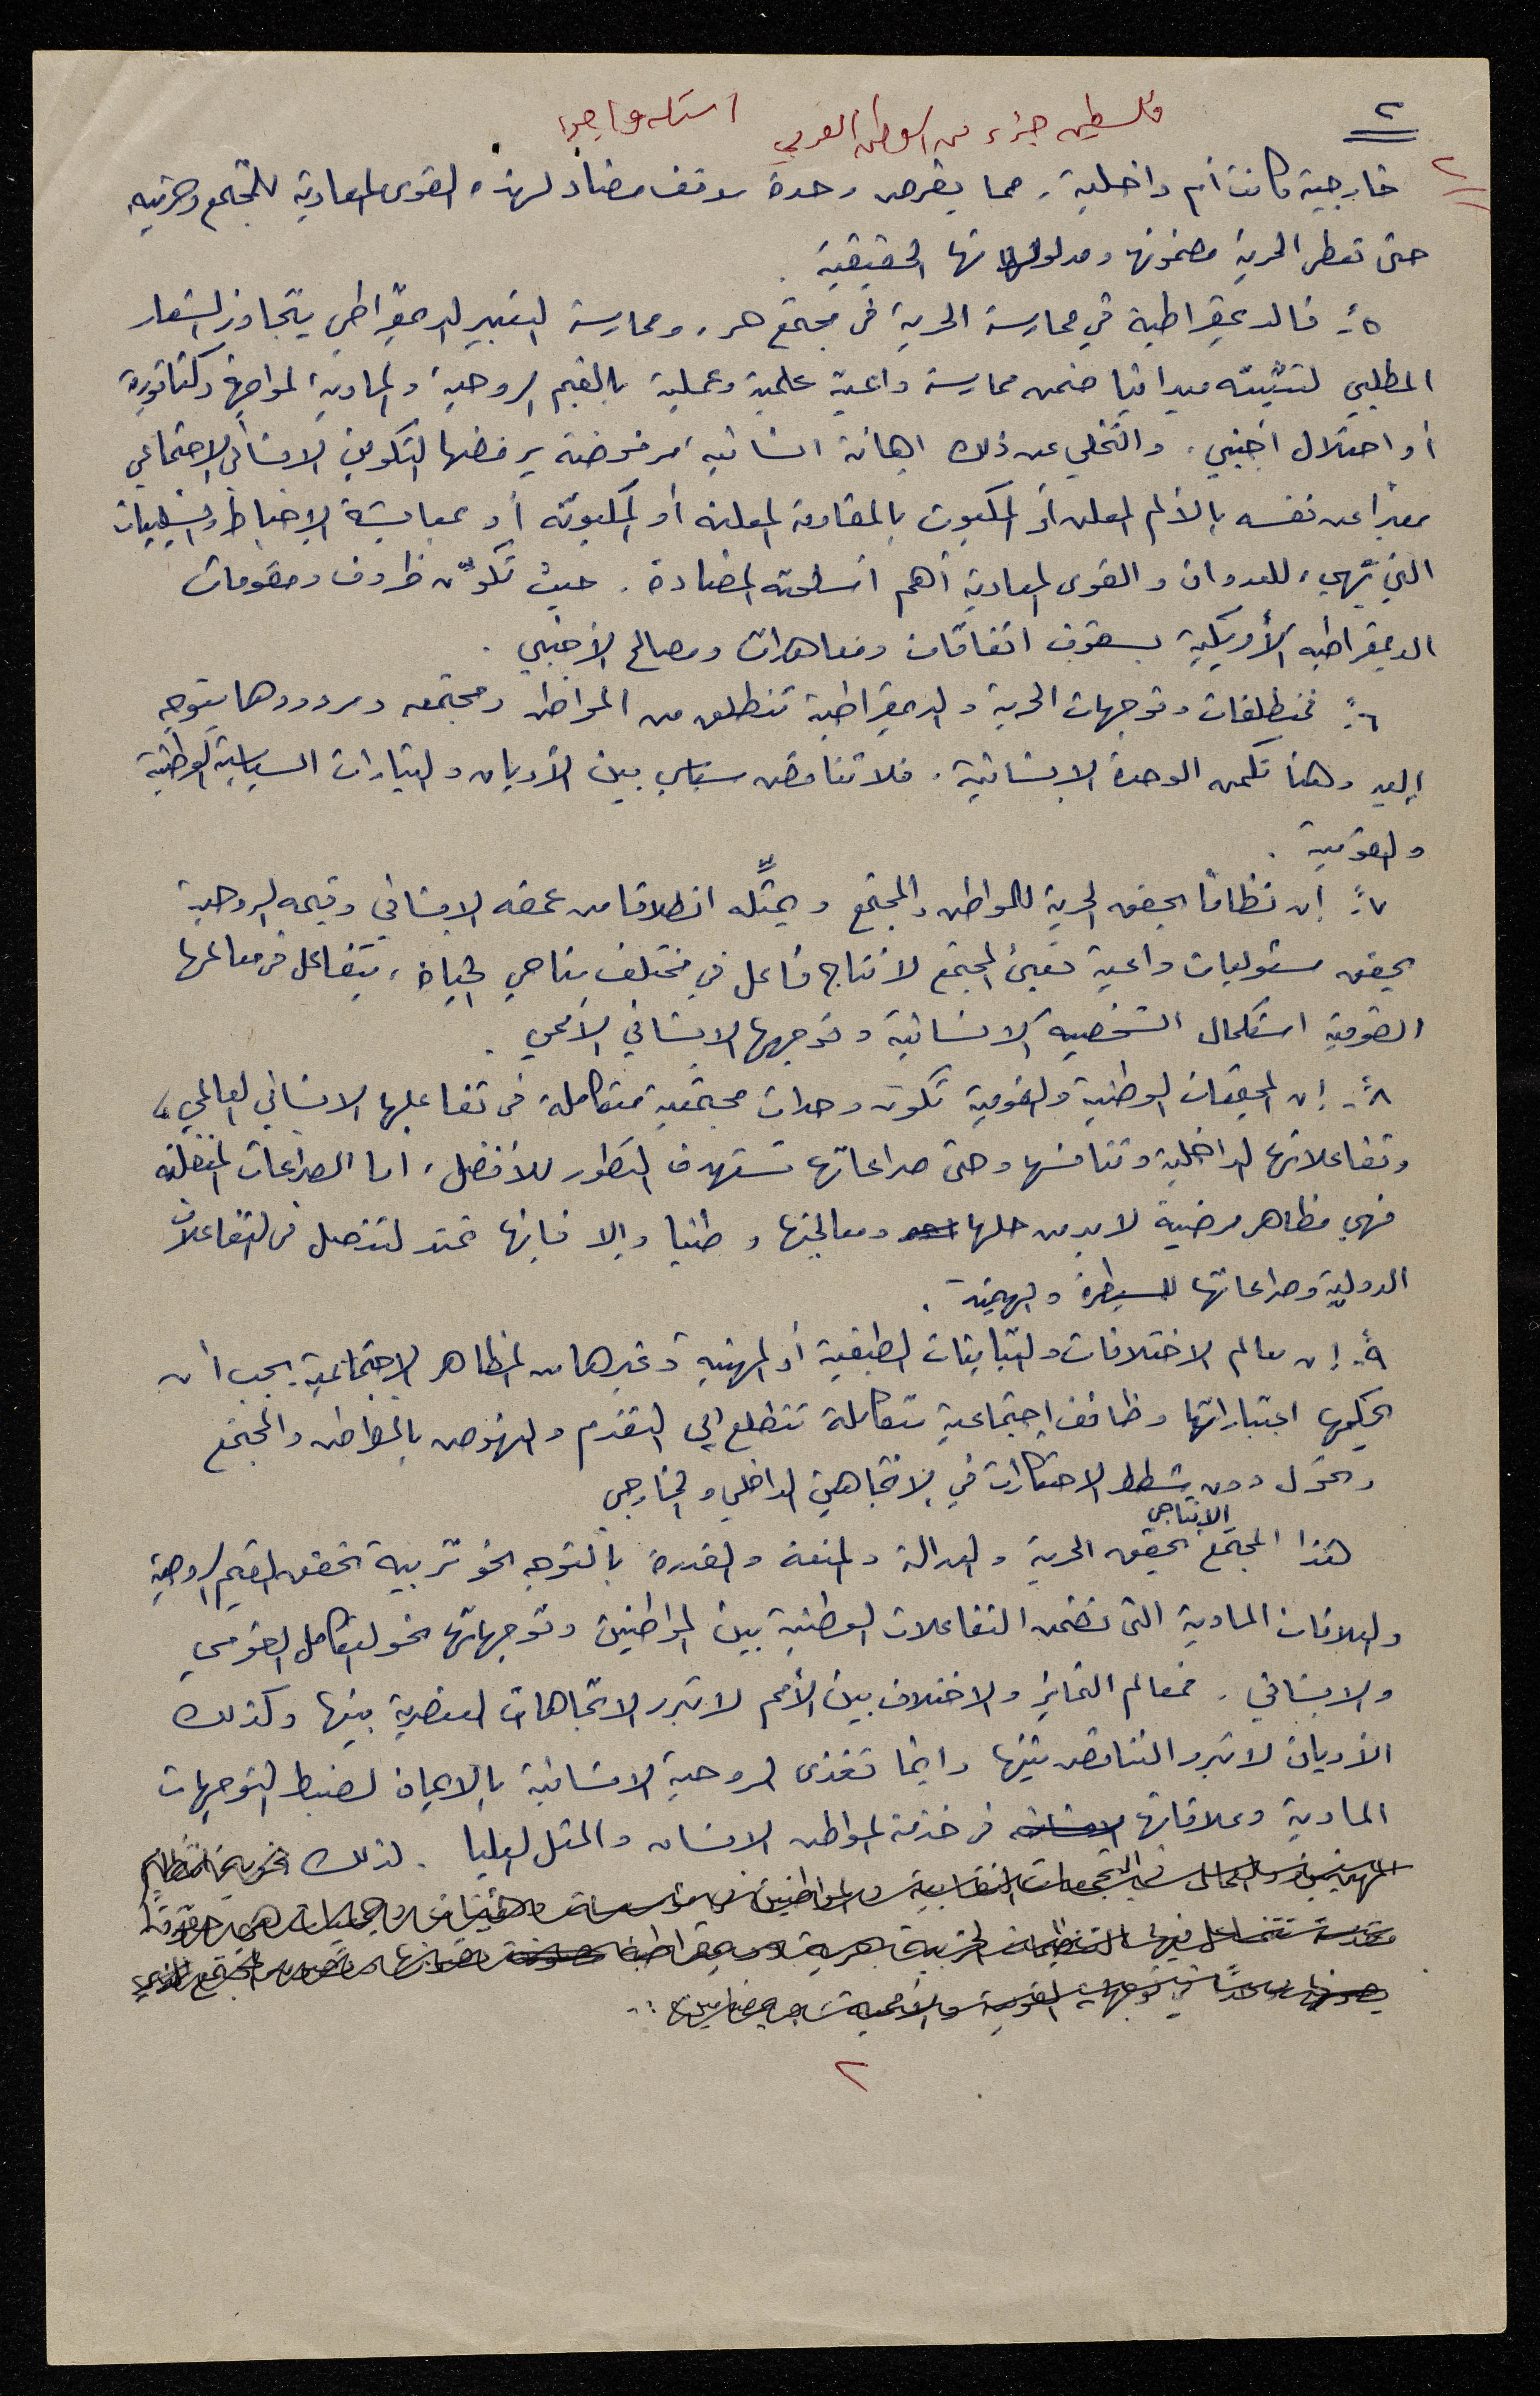 ٢
فلسطين جزء من الوطن العربي
٢
خارجية كانت أم داخلية، مما يفرض وحدة موقف مضاد لهذه القوى المعادية للمجتمع وحريته
حتى تعطى الحرية مضمونها ومدلولاتها الحقيقية.
٥ً- فالديمقراطية هي ممارسة الحرية في مجتمع حر، وممارسة التعبير الديمقراطي يتجاوز الشعار
المطلبي لتثبيته ميدانيا ضمن ممارسة واعية علمية وعملية بالقيم الروحية والمادية لمواجهة دكتاتورية
أو احتلال أجنبي، والتخلي عن ذلك إهانة انسانية مرفوضة يرفضها التكوين الانساني الاجتماعي
معبراً عن نفسه بالألم المعلن أو المكبوت بالمقاومة المعلنة أو المكبوتة أو بمعايشة الإحباط والسلبيات
التي تهيء للعدوان والقوى المعادية أهم أسلحته المضادة. حيث تكوّن ظروف ومقومات
الديمقراطية الأمريكية بسقوف اتفاقات ومعاهدات ومصالح الأجنبي.
٦ً- فمنطلقات وتوجهات الحرية والديمقراطية تنطلق من المواطن ومجتمعه ومردودها يتوجه
إليه وهنا تكمن الوحدة الإنسانية. فلا تناقض سياسي بين الأديان والتيارات السياسية الوطنية
والقومية.
٧ً- إن نظاماً يحقق الحرية للمواطن والمجتمع ويمثّله انطلاقا من عمقه الإنساني وقيمه الروحية
يحقق مسئوليات واعية تعبئ المجتمع لانتاج فاعل في مختلف مناحي الحياة، يتفاعل في معالمها
القومية استكمال الشخصية الانسانية وتوجهها الإنساني الأممي.
٨ً- إن المجتمعات الوطنية والقومية تكون وحدات مجتمعية متكاملة في تفاعلها الانساني العالمي،
وتفاعلاتها الداخلية وتنافسها وحتى صراعاتها تستهدف التطور للأفضل، اما الصراعات المنفلتة
فهي مظاهر مرضية لا بد من حلها ومعالجتها وطنيا وإلا فإنها تمتد لتدخل في التفاعلات
الدولية وصراعاتها للسيطرة والهيمنة.
٩ً- إن معالم الاختلافات والتباينات الطبقية أو المهنية وغيرها من المظاهر الاجتماعية يجب أن
تحكمها اعتباراتها وظائف إجتماعية متكاملة تتطلع إلى التقدم والنهوض بالمواطن والمجتمع
وتحول دون شطط الاحتكارات في الاتجاهين الداخلي والخارجي
هذا المجتمع الإنتاجي يحقق الحرية والعدالة والمنعة والقدرة بالتوجه نحو تربية تحقق القيم الروحية
والعلاقات المادية التي تضمن التفاعلات الوطنية بين المواطنين وتوجهاتها نحو التكامل القومي
والإنساني. فمعالم التمايز والاختلاف بين الأمم لا تبرر الاتجاهات العنصرية بينها وكذلك
الأديان لا تبرر التناقض بينها وإنما تغذى الروحية الانسانية بالإيمان لضبط التوجهات
المادية وعلاقاتها في خدمة المواطن الانسان والمثل العليا. لذلك
٢